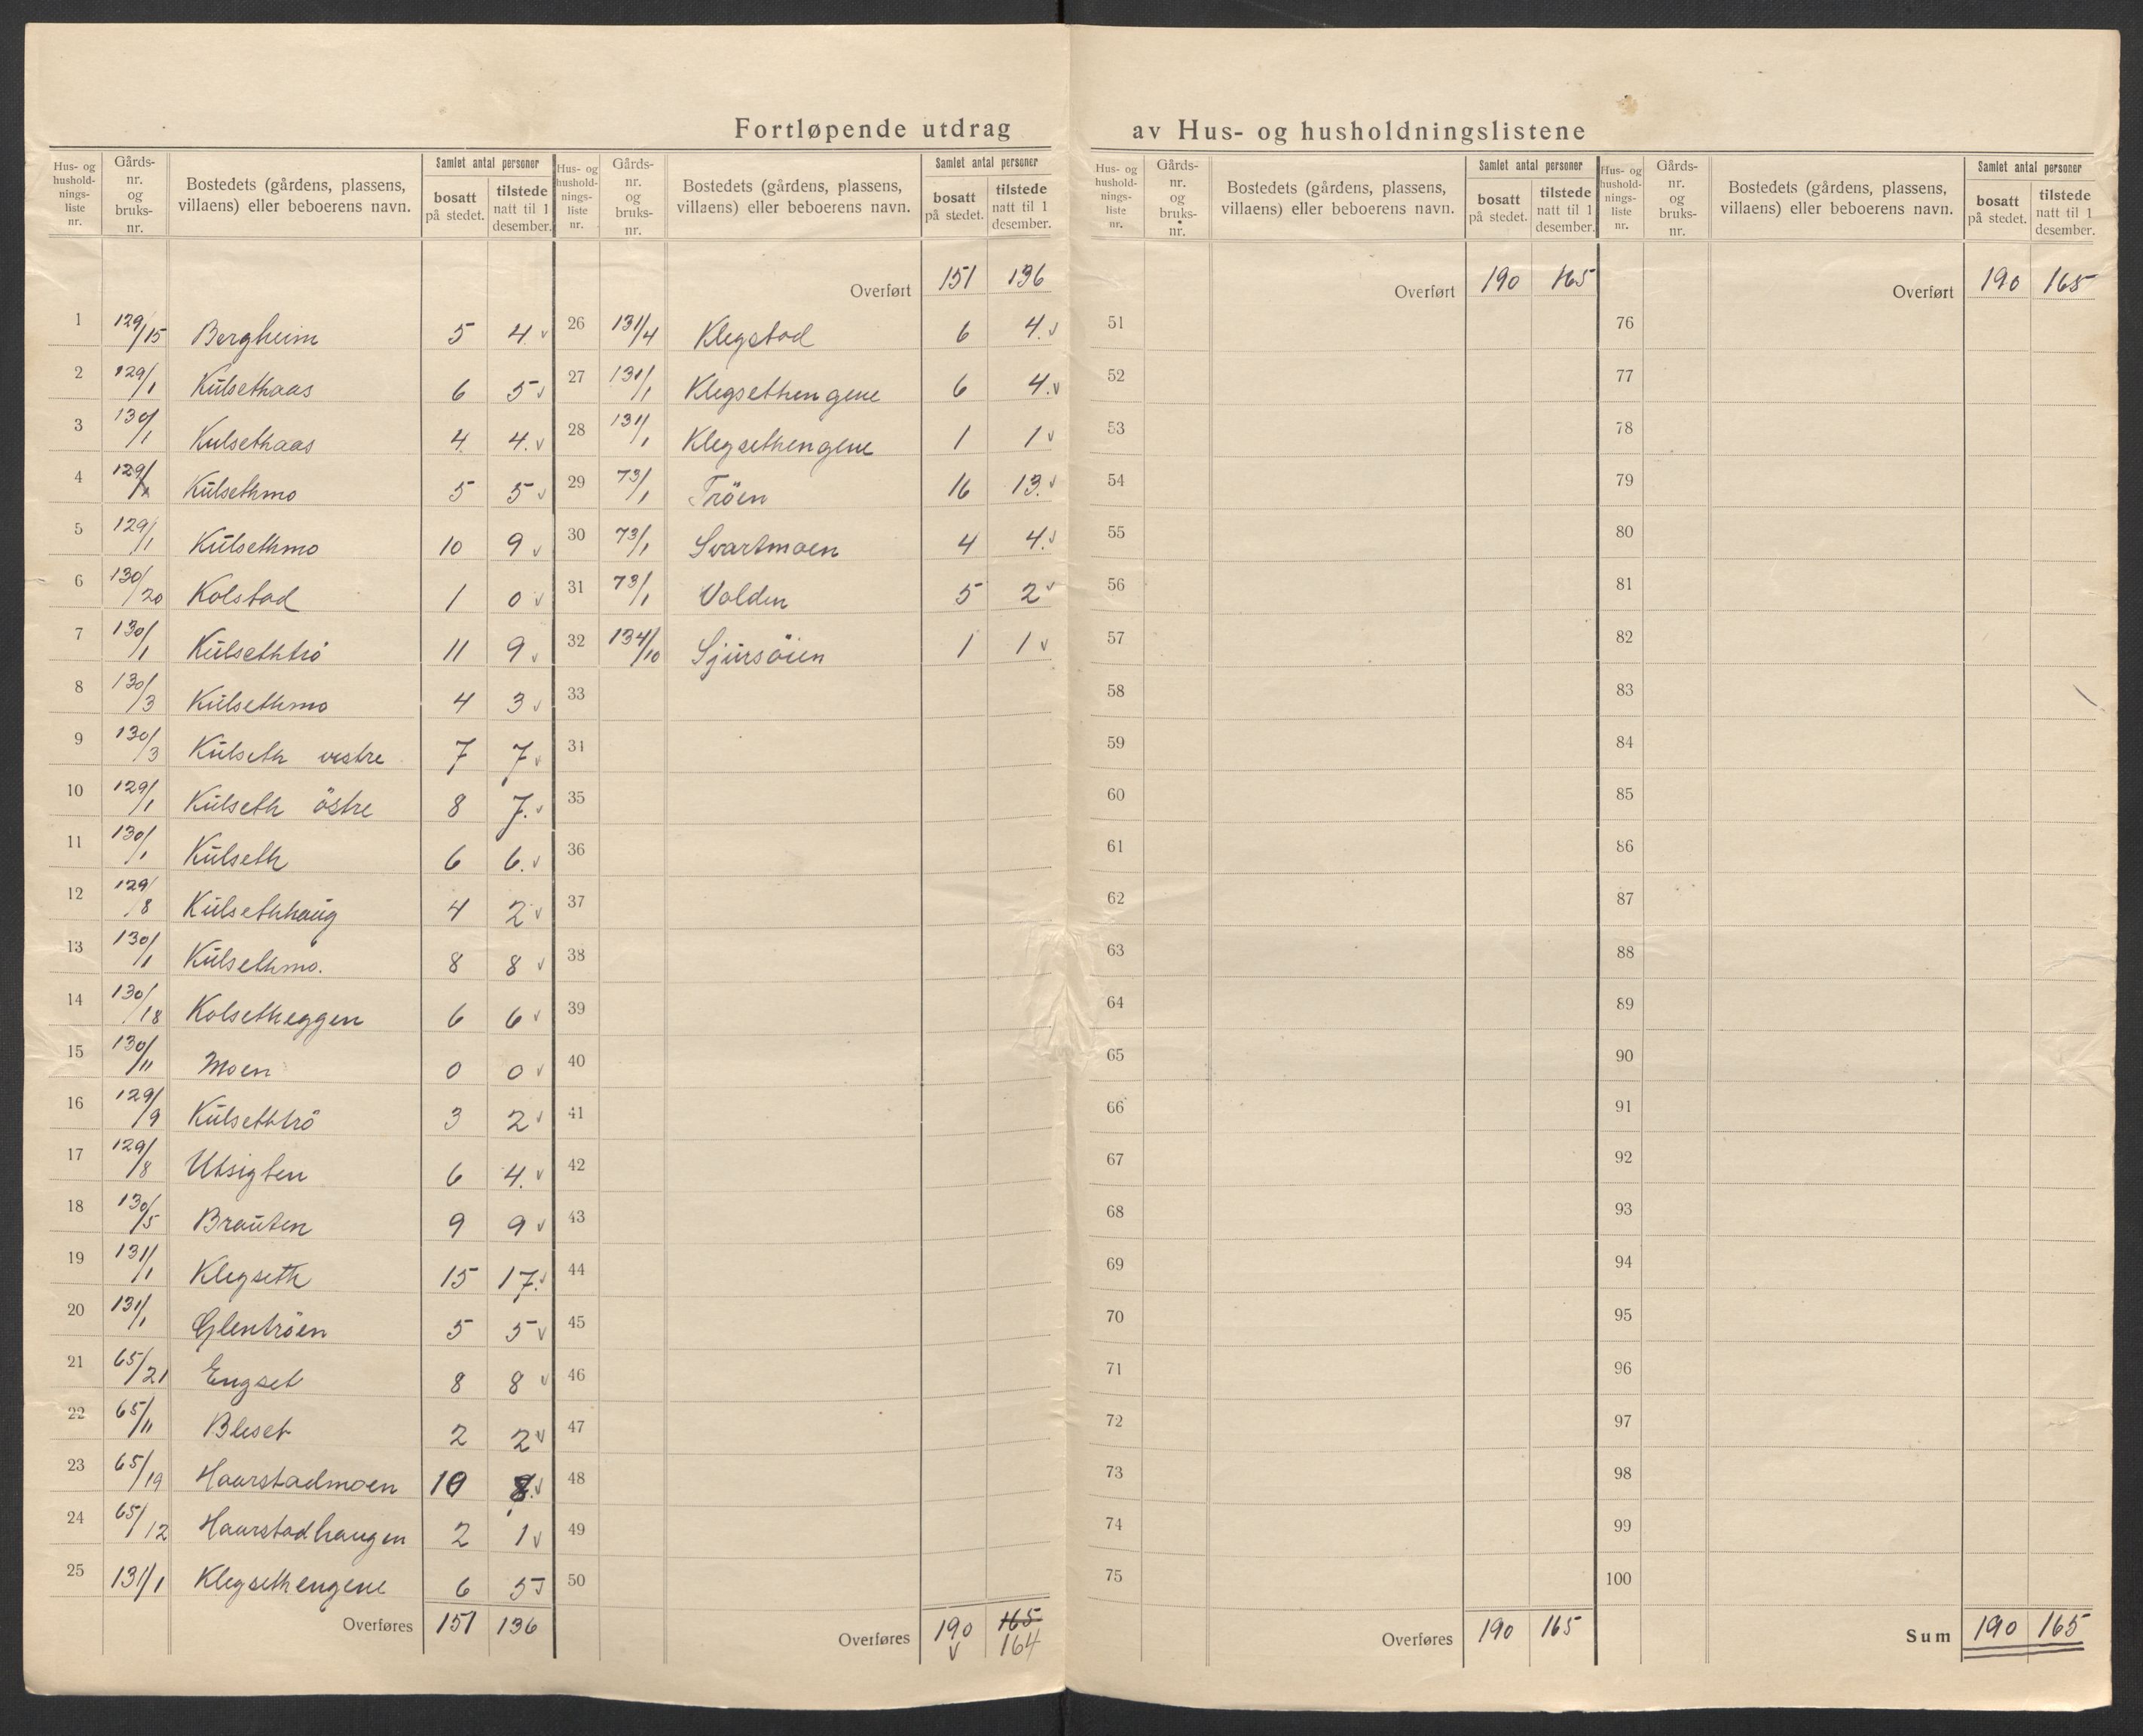 Fortløpende utdrag av Hus- og husholdningslistene
Hus- og husholdnings-liste nr. Gårds-nr. og bruks-nr. Bostedets (gårdens, plassens, villaens) eller beboerens navn. Samlet antal personer bosatt på stedet. tilstede natt til 1 desember.
1 129/15 Bergheim 5 4. v
2 129/1 Külsethaas 6 5 v
3 130/1 Kulsethaas 4 4. v
4 129/ Külsethmo 5 5 v
5 129/1 Külsethmo 10 9 v
6 130/20 Kolstad 1 0 v
7 130/1 Külsethtrö 11 9 v
8 130/3 Külsethmo 4 3 v
9 130/3 Külseth vestre 7 7 v
10 129/1 Külseth östre 8 7. v
11 130/1 Külseth 6 6. v
12 129/8 Külsethhaüg 4 2 v
13 130/1 Külsethmo. 8 8 v
14 130/18 Kolsetheggen 6 6 v
15 130/11 Moen 0 0 v
16 129/9 Külsethtrö 3 2 v
17 129/8 Utsigten 6 4. v
18 130/5 Braüten 9 9 v
19 131/1 Klegseth 15 17. v
20 131/1 Glentröen 5 5 v
21 65/21 Engset 8 8 v
22 65/11 Bleset 2 2 v
23 65/19 Haarstadmoen 10 8. v
24 65/12 Haarstadhaugen 2 1 v
25 131/1 Klegsethengene 6 5 v
Overføres 151 136
Hus- og husholdnings-liste nr. Gårds-nr. og bruks-nr. Bostedets (gårdens, plassens, villaens) eller beboerens navn. Samlet antal personer bosatt på stedet. tilstede natt til 1 desember.
Overført 151 136
26 131/4 Klegstad 6 4. v
27 131/1 Klegsethengene 6 4. v
28 131/1 Klegsethengene 1 1 v
29 73/1 Tröen 16 13. v
30 73/1 Svartmoen 4 4. v
31 73/1 Volden 5 2 v
32 134/10 Sjürsöien 1 1 v
33
34
35
36
37
38
39
40
41
42
43
44
45
46
47
48
49
50
Overføres 190 165
v 164
Hus- og husholdnings-liste nr. Gårds-nr. og bruks-nr. Bostedets (gårdens, plassens, villaens) eller beboerens navn. Samlet antal personer bosatt på stedet. tilstede natt til 1 desember.
Overført 190 165
51
52
53
54
55
56
57
58
59
60
61
62
63
64
65
66
67
68
69
70
71
72
73
74
75
Overføres 190 165
Hus- og husholdnings-liste nr. Gårds-nr. og bruks-nr. Bostedets (gårdens, plassens, villaens) eller beboerens navn. Samlet antal personer bosatt på stedet. tilstede natt til 1 desember.
Overført 190 165
76
77
78
79
80
81
82
83
84
85
86
87
88
89
90
91
92
93
94
95
96
97
98
99
100
Sum 190 165